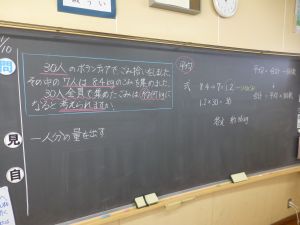 1/10
問
30人のボランティアでごみ拾いをしました。
その中の7人は8.4kgのごみを集めました。
30人全員で集めたごみは、何kgに
なると考えられますか。
見
一人分の量を出す
自
平均
式 8.4÷7=1.2
1.2×30=36
答え 約36kg
平均=合計÷個数
合計=平均×個数